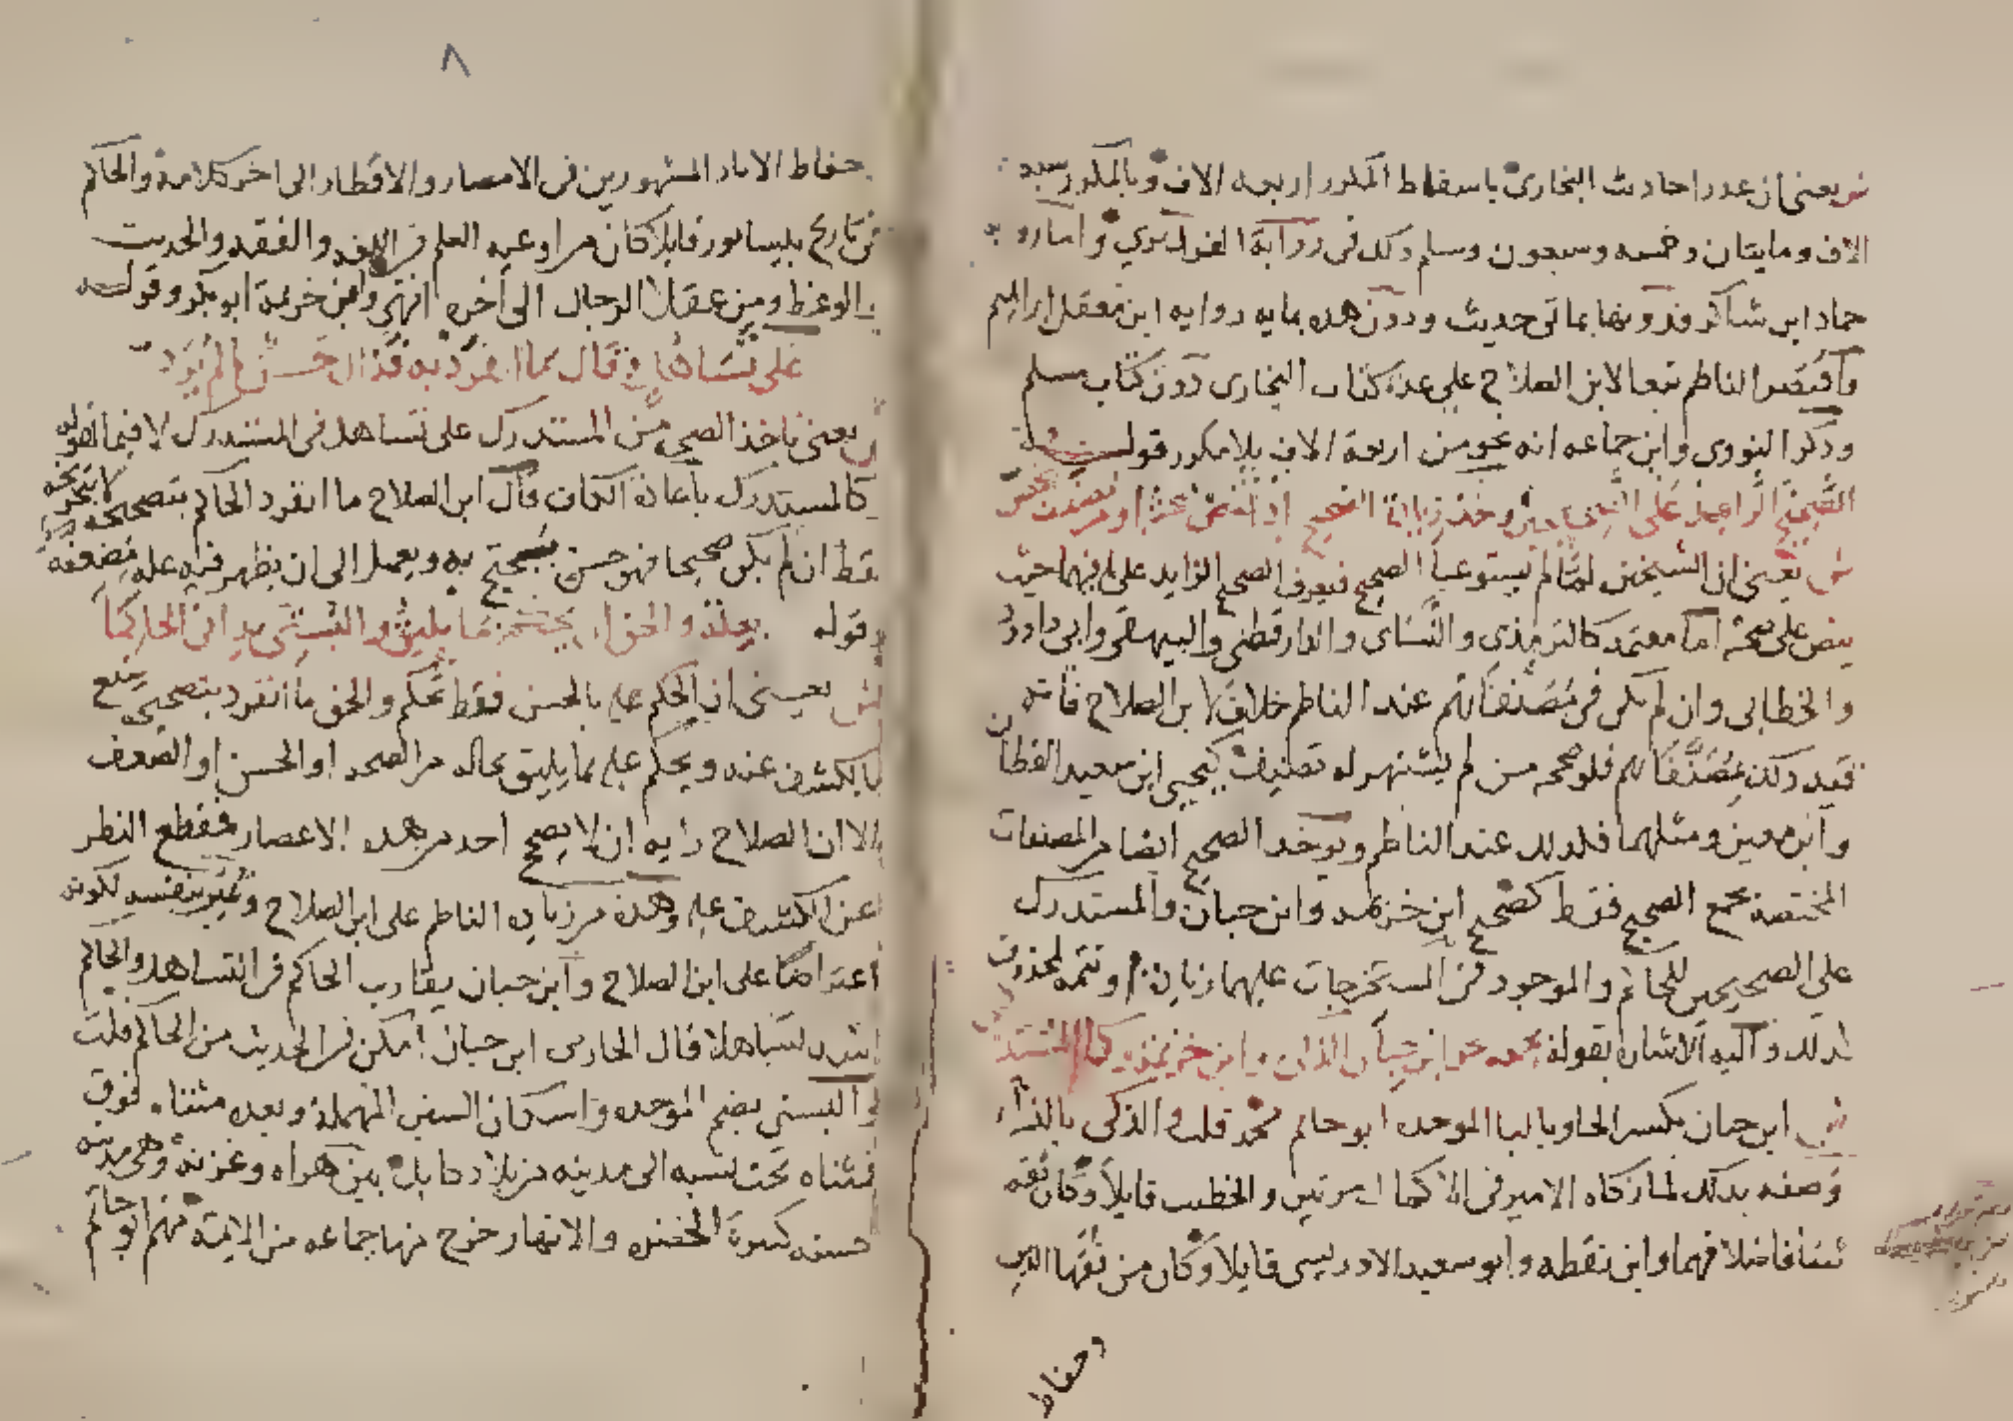 ش يعني ان عدد احاديث البخاري باسقاط المكرر اربعه الاف وبالمكرر سبعه
الاف ومايتان وخمسه وسبعون وسلم ذلك في رواية الفربري واما رواية
حماد ابن شاكر فدونها بمائتي حديث ودون هذه بمايه روايه ابن معقل ابراهيم
واقتصر الناظم تبعا لابن الصلاح على عدة كتاب البخارى دون كتاب مسلم
وذكر النووى وابن جماعه انه نحو من اربعة الاف بلا مكرر قوله
وخذ زيادة الصحيح اذ تنص صحته او من مصنف يخص
ش يعني ان الشيخين لما لم يستوعبا الصحيح فيعرف الصحيح الزايد على ما فيهما حيث
ينص على صحته امام معتمد كالترمذى والنساى والدارقطنى والبيهقى وابى داود
والخطابى وان لم يكن فى مصنفاتهم عند الناظم خلافا لابن الصلاح فانه
قيد ذلك بمصنفاتهم فلو صححه من لم يشتهر له تصنيف كيحيى ابن سعيد القطان
وابن معين ومثلهما فكذلك عند الناظم ويوخذ الصحيح ايضا من المصنفات
المختصة بجمع الصحيح فقط كصحيح ابن خزيمه وابن حبان والمستدرك
على الصحيحين للحاكم والموجود فى المستخرجات عليهما زيادة او تتمه لمحذوف
كذلك واليه الاشارة بقوله بجمعه نحو ابن حبان الذكى وابن خزيمة وكالمستدرك
ش ابن حبان بكسر الحا وبالبا الموحده ابو حاتم محمد قلت والذكى بالذال
وصفه بذلك لما زكاه الامير فى الاكمال مرتين والخطيب قايلا وكان ثقة
ثبتا فاضلا فهما وابن نقطه وابو سعيد الادريسى قايلا وكان من فقها الدين
وحفاظ
٨
حفاظ الاثار المشهورين فى الامصار والاقطار الى اخر كلامه والحاكم
فى تاريخ نيسابور قايلا كان من اوعيه العلم فى اللغه والفقه والحديث
والوعظ ومن عقلا الرجال الى اخره انتهى وابن خزيمة ابو بكر وقوله
على تساهل وقال ما انفرد به فذاك حسن ما لم يرد
ش يعنى ناخذ الصحيح من المستدرك على تساهل فى المستدرك لا فيما قبله
كالمستدرك باعادة الكاف قال ابن الصلاح ما انفرد الحاكم بتصحيحه لا بتخريجه
فقط ان لم يكن صحيحا فهو حسن يحتج به ويعمل الى ان يظهر فيه علة مضعفة
وقوله بعلة والحق ان يحكم بما يليق والبستى يدانى الحاكما
ش يعنى ان الحكم عليه بالحسن فقط تحكم والحق ما انفرد بتصحيحه يتتبع
بالكشف عنه ويحكم عليه بما يليق بحاله من الصحه او الحسن او الضعف
الا ان الصلاح رايه ان لا يصحح احد من هذه الاعصار فقطع النظر
عن الكشف عليه وهذه من زيادة الناظم على ابن الصلاح لكونه
اعتراضا على ابن الصلاح وابن حبان يقارب الحاكم فى التساهل والحاكم
اشد تساهلا قال الحازمى ابن حبان امكن فى الحديث من الحاكم قلت
والبستى بضم الموحده واسكان السين المهملة وبعده مثناه فوق
فمثناه تحت نسبه الى مدينه من بلاد كابل بين هراه وغزنة وهى مدينة
حسنه كثيرة الخضره والانهار خرج منها جماعه من الايمة منهم ابو حاتم